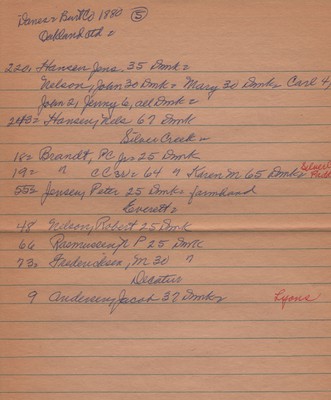 Danes = Burt Co 1880 (5)
Oakland oth =
220. Hansen, Jens. 35 Dmk =
Nelson, John 30 Dmk = Mary 30 Dmk, Carl 4,
John 2, Jenny 6, all Dmk =
243 = Hansen, Nels 67 Dmk
Silver Creek =
18 = Brandt, PC Jr 25 Dmk
19 = " CC Sr = 64 " Karen M 65 Dmk
55 = Jensen, Peter 25 Dmk = farmhand
Everett =
48 Nelson, Robert 25 Dmk
66 Rasmussen, N P 25 Dmk
73. Fredericksen, M 30 "
Decatur
9 Andersen, Jacob 37 Dmk Lyons